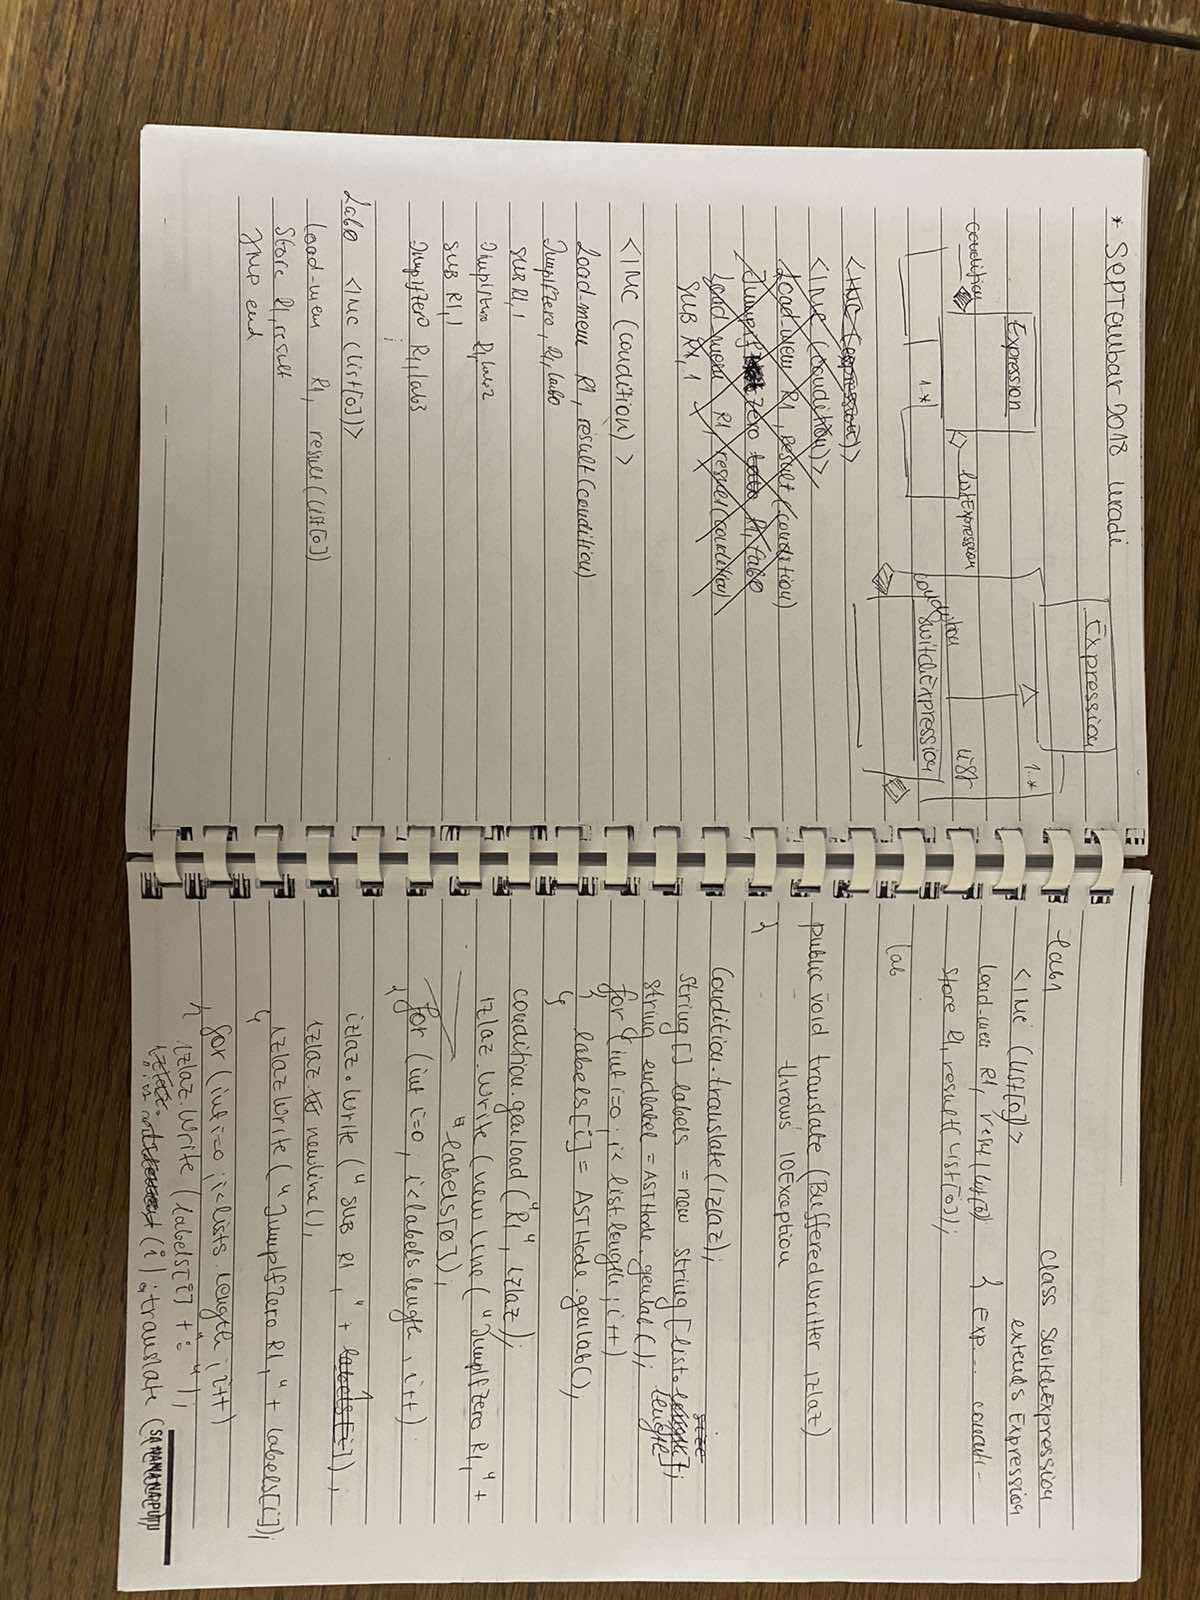 * Septembar 2018 uradi
Expression
condition
listExpression
1-*
Expression
1..*
list
condition
SwitchExpression
<INC (expression)>
<INC (condition)>
Load-mem R1, result (condition)
JumpIfZero R1, lab0
Load_mem R1, result(condition)
SUB R1, 1
<INC (condition)>
Load-mem R1, result(condition)
JumpIfZero, R1, lab0
SUB R1, 1
JumpIfZero R1, lab2
SUB R1, 1
JumpIfZero R1, lab3
:
Lab0 <INC (list[0])>
Load-mem R1, result(list[0])
Store R1, result
JMP end
lab1
<INC (list[0])>
Load-mem R1, resu
Store R1, result(list[0]);
lab
class SwitchExpression
extends Expression
{ Exp... condi-
public void translate (BufferedWritter izlaz)
throws IOException
{
Condition.translate(izlaz);
String[] labels = new String[list.length];
size
length
String endlabel = ASTNode.genlab();
for (int i=0; i< list.length; i++)
{ labels[i] = ASTNode.genlab();
}
condition.genload("R1", izlaz);
izlaz.write(new line("JumpIfZero R1," +
"labels[0]);
for (int i=0, i<labels.length, i++)
{
izlaz.write("SUB R1," + 1 labels[i]);
izlaz.newline();
izlaz.write("JumpIfZero R1," + labels[i]);
}
for (int i=0; i<lists.length; i++)
{ izlaz.write(labels[i] + ":");
izlaz.
(i).translate(
SAMANANAPUTU